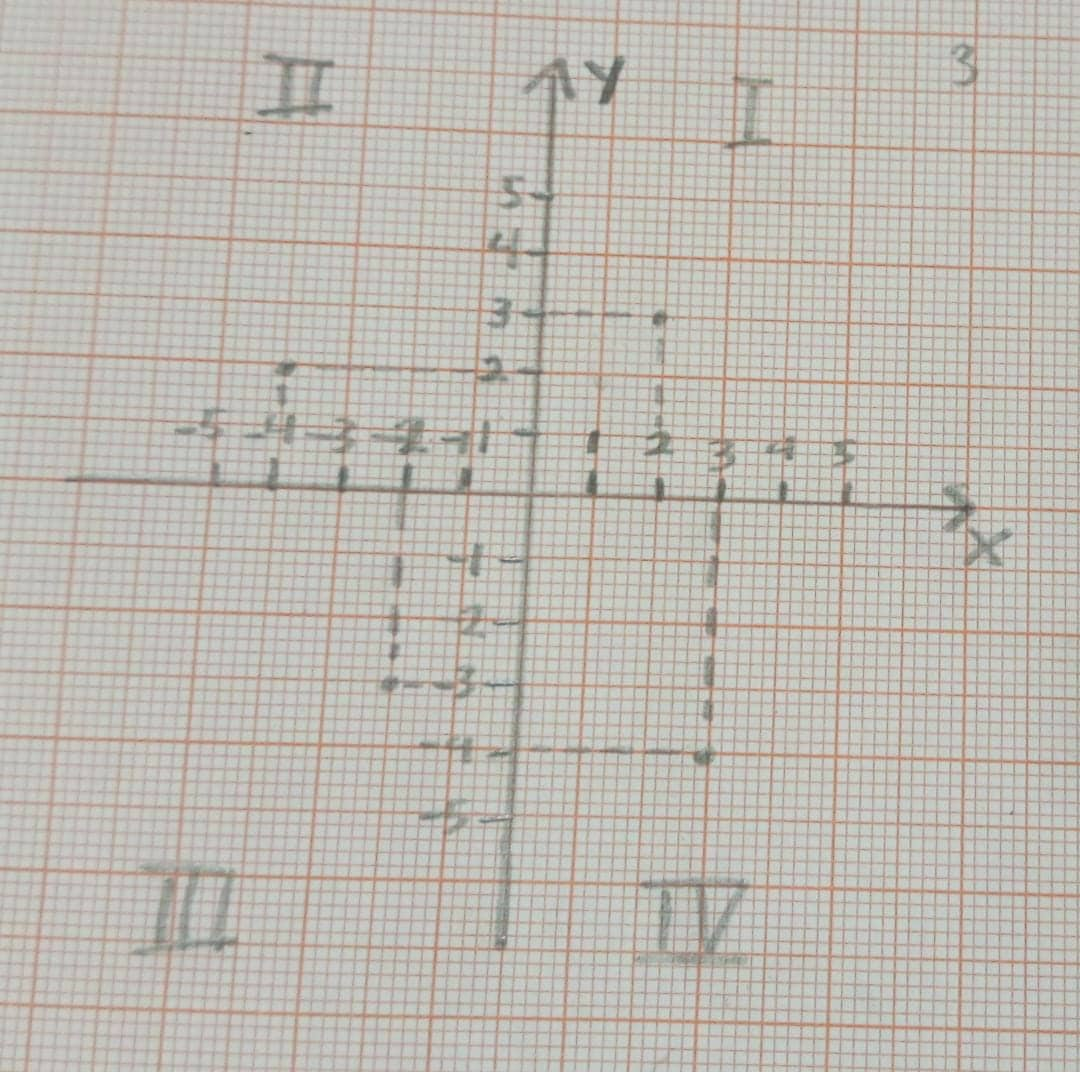 3
II Y I
5
4
3
2
-5 -4 -3 -2 -1 1 1 2 3 4 5
X
-1
-2
-3
-4
-5
III IV